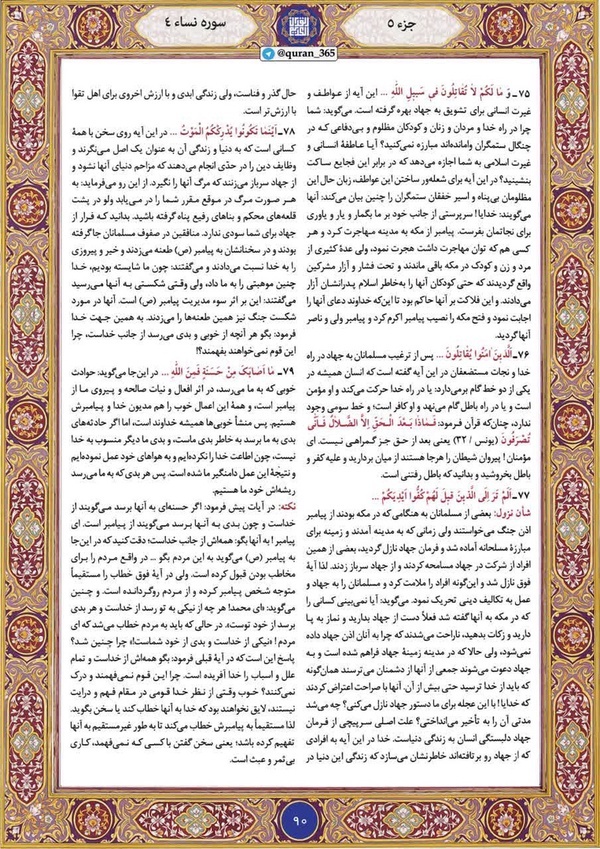 جزء ۵
سوره نساء ۴
@quran_365
۷۵ـ وَ مَا لَكُمْ لاَ تُقَاتِلُونَ فِي سَبِيلِ اللَّهِ ... این آیه از عواطف و
غیرت انسانی برای تشویق به جهاد بهره گرفته است. می‌گوید: شما
چرا در راه خدا و مردان و زنان و کودکان مظلوم و بی‌دفاعی که در
چنگال ستمگران وامانده‌اند مبارزه نمی‌کنید؟ آیا عـاطفهٔ انسانی و
غیرت اسلامی به شما اجازه می‌دهد که در برابر این فجایع سـاکت
بنشینید؟ در این آیه برای شعله‌ور ساختن این عواطف، زبان حال این
مظلومان بی‌پناه و اسیر خفقان ستمگران را چنین بیان می‌کند: آنها
می‌گویند: خدایا! سرپرستی از جانب خود بر ما بگمار و یار و یاوری
برای نجاتمان بفرست. پیامبر از مکه به مدینه مهاجرت کـرد و هـر
کسی هم که توان مهاجرت داشت هجرت نمود، ولی عدهٔ کثیری از
مرد و زن و کودک در مکه باقی ماندند و تحت فشار و آزار مشرکین
واقع گردیدند که حتی کودکان آنها را به‌خاطر اسلام پدرانشان آزار
می‌دادند. و این فلاکت بر آنها حاکم بود تا این‌که خداوند دعای آنها را
اجابت نمود و فتح مکه را نصیب پیامبر اکرم کرد و پیامبر ولی و ناصر
آنها گردید.
۷۶ـ اَلَّذِينَ آمَنُوا يُقَاتِلُونَ ... پس از ترغیب مسلمانان به جهاد در راه
خدا و نجات مستضعفان در این آیه گفته است که انسان همیشه در
یکی از دو خط گام برمی‌دارد: یا در راه خدا حرکت می‌کند و او مؤمن
است و یا در راه باطل گام می‌نهد و او کافر است؛ و خط سومی وجود
ندارد، چنان‌که قرآن فرمود: فَـمَاذَا بَـعْدَ الْـحَقِّ اِلاَّ الضَّـلاَلُ فَأَنَّـى
تُـصْرَفُونَ (یونس / ۳۲) یعنی بعد از حـق جـز گـمراهی نیست. ای
مؤمنان! پیروان شیطان را هرجا هستند از میان بردارید و علیه کفر و
باطل بخروشید و بدانید که باطل رفتنی است.
۷۷ـ اَلَمْ تَرَ اِلَى الَّذِينَ قِيلَ لَهُمْ كُفُّوا اَيْدِيَكُمْ ...
شأن نزول: بعضی از مسلمانان به هنگامی که در مکه بودند از پیامبر
اذن جنگ می‌خواستند ولی زمانی که به مدینه آمدند و زمینه برای
مبارزهٔ مسلحانه آماده شد و فرمان جهاد نازل گردید، بعضی از همین
افراد از شرکت در جهاد مسامحه کردند و از جهاد سرباز زدند. لذا آیهٔ
فوق نازل شد و این‌گونه افراد را ملامت کرد و مسلمانان را به جهاد و
عمل به تکالیف دینی تحریک نمود. می‌گوید: آیا نمی‌بینی کسانی را
که در مکه به آنها گفته شد فعلاً دست از جهاد بدارید و نماز به پا
دارید و زکات بدهید، ناراحت می‌شدند که چرا به آنان اذن جهاد داده
نمی‌شود، ولی حالا که در مدینه زمینهٔ جهاد فراهم شده است و به
جهاد دعوت می‌شوند جمعی از آنها از دشمنان می‌ترسند همان‌گونه
که باید از خدا ترسید حتی بیش از آن. آنها با صراحت اعتراض کردند
که خدایا! با این عجله برای ما دستور جهاد نازل می‌کنی؟ چه می‌شد
مدتی آن را به تأخیر می‌انداختی؟ علت اصلی سـرپیچی از فـرمان
جهاد دلبستگی انسان به زندگی دنیاست. خدا در این آیه به افرادی
که از جهاد رو برتافته‌اند خاطرنشان می‌سازد که زندگی این دنیا در
حال گذر و فناست، ولی زندگی ابدی و با ارزش اخروی برای اهل تقوا
با ارزش‌تر است.
۷۸ـ اَيْنَمَا تَكُونُوا يُدْرِكْكُمُ الْمَوْتُ ... در این آیه روی سخن با همهٔ
کسانی است که به دنیا و زندگی آن به عنوان یک اصل مـی‌نگرند و
وظایف دین را در حدّی انجام می‌دهند که مزاحم دنیای آنها نشود و
از جهاد سرباز می‌زنند که مرگ آنها را نگیرد. از این رو می‌فرماید: به
هر صـورت مـرگ در موقع مـقرر شـما را در مـی‌یابد ولو در پشت
قلعه‌های محکم و بناهای رفیع پناه گرفته باشید. بدانید که فـرار از
جهاد برای شما سودی ندارد. منافقین در صفوف مسلمانان جا گرفته
بودند و در سخنانشان به پیامبر (ص) طعنه می‌زدند و خیر و پیروزی
را به خدا نسبت می‌دادند و می‌گفتند: چون ما شایسته بودیم، خـدا
چنین موهبتی را به ما داد، ولی وقـتی شکسـتی بـه آنـها مـی‌رسید
می‌گفتند: این بر اثر سوء مدیریت پیامبر (ص) است. آنها در مـورد
شکست جنگ نیز همین طعنه‌ها را می‌زدند. به همین جـهت خـدا
فرمود: بگو هر آنچه از خوبی و بدی می‌رسد از جانب خداست، چرا
این قوم نمی‌خواهند بفهمند؟!
۷۹ـ مَا اَصَابَكَ مِنْ حَسَنَةٍ فَمِنَ اللَّهِ ... در این‌جا می‌گوید: حوادث
خوبی که به ما می‌رسد، در آثر افعال و نیات صالحه و پیـروی مـا از
پیامبر است، و همهٔ این اعمال خوب را هم مدیون خدا و پیامبرش
هستیم. پس منشأ خوبی‌ها همیشه خداوند است، اما اگر حادثه‌های
بدی به ما برسد به خاطر بدی ماست، و بدی ما دیگر منسوب به خدا
نیست، چون اطاعت خدا را نکرده‌ایم و به هواهای خود عمل نموده‌ایم
و نتیجهٔ این عمل دامنگیر ما شده است. پس هر بدی که به ما می‌رسد
ریشه‌اش خود ما هستیم.
نکته: در آیات پیش فرمود: اگر حسنه‌ای به آنها برسد می‌گویند از
خداست و چون بـدی بـه آنـها بـرسد مـی‌گویند از پیامبر است. ای
پیامبر! به آنها بگو: همه‌اش از جانب خداست؛ دقت کنید که در این‌جا
به پیامبر (ص) می‌گوید به این مردم بگو ـ در واقـع مـردم را بـرای
مخاطب بودن قبول کرده است. ولی در آیهٔ فوق خطاب را مستقیماً
متوجه شخص پیامبـر کـرده و از مـردم روگـردانده است. و چـنین
می‌گوید: «ای محمد! هر چه از نیکی به تو رسد از خداست و هر بدی
برسد از خود توست». در حالی که باید به مردم خطاب می‌شد که ای
مردم! «نیکی از خداست و بدی از خود شماست!» چرا چـنین شـد؟
پاسخ این است که در آیهٔ قبلی فرمود: بگو همه‌اش از خداست و تمام
علل و اسباب را خدا آفریده است. چرا ایـن قـوم نـمی‌فهمند و درک
نمی‌کنند؟ خوب وقتی از نظر خـدا قومی در مـقام فـهم و درایت
نیستند، لایق نخواهند بود که خدا به آنها خطاب کند یا سخن بگوید.
لذا مستقیماً به پیامبرش خطاب می‌کند تا به طور غیرمستقیم به آنها
تفهیم کرده باشد؛ یعنی سخن گفتن با کسـی کـه نـمی‌فهمد، کـاری
بی‌ثمر و عبث است.
۹۰